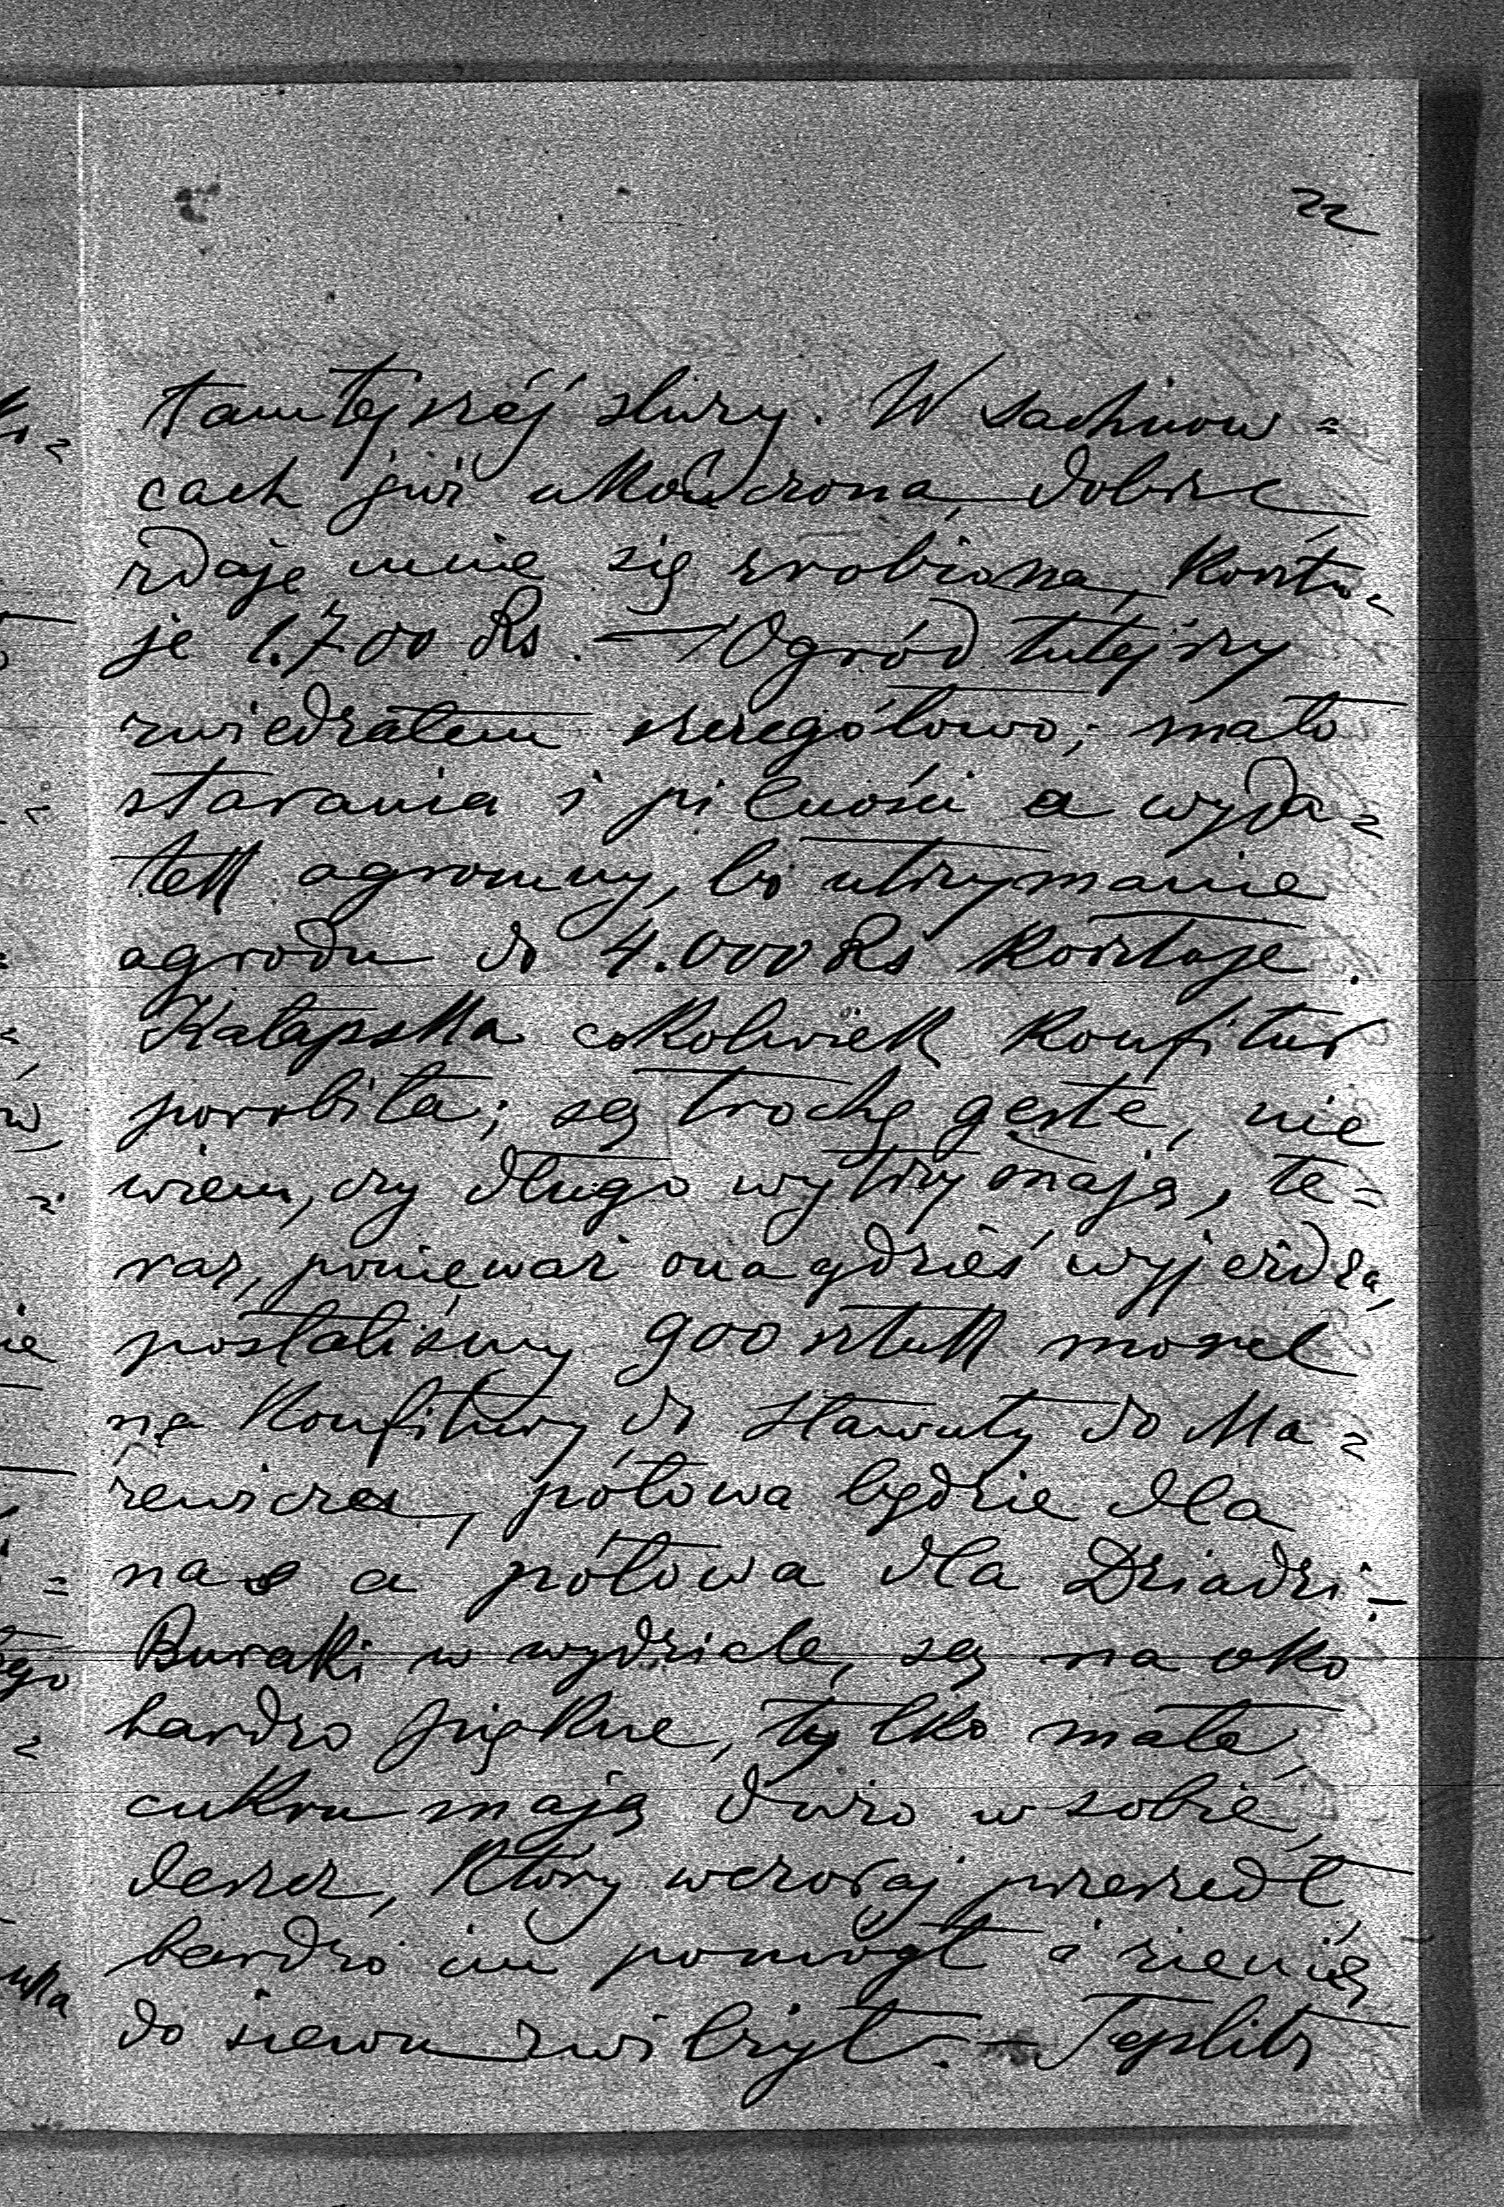 22
tamtejszéj śluzy. W Sachnow=
cach już ukończona, dobrze
zdaje mnie się zrobiona, kosztu-
je 1.700 Rs. — Ogród tutejszy
zwiedzałem szczegółowo; mało
starania i pilności a wyda=
tek ogromny, bo utrzymanie
ogrodu do 4.000 Rs kosztuje.
cokolwiek konfitur
porobiła; są trochę gęste, nie
wiem, czy długo wytrzymają, te=
raz, ponieważ ona gdzieś wyjeżdża,
posłaliśmy 900 sztuk morel
na konfitury do Sławuty do Ma=
rewicza, połowa będzie dla
nas a połowa dla Dziadzi.—
Buraki w wydziale, są na oko
bardzo piękne, tylko małe,
cukru mają dużo w sobie,
deszcz, który wczoraj przeszedł,
bardzo im pomógł i ziemię
do siewu zwilżył. — Teplitz